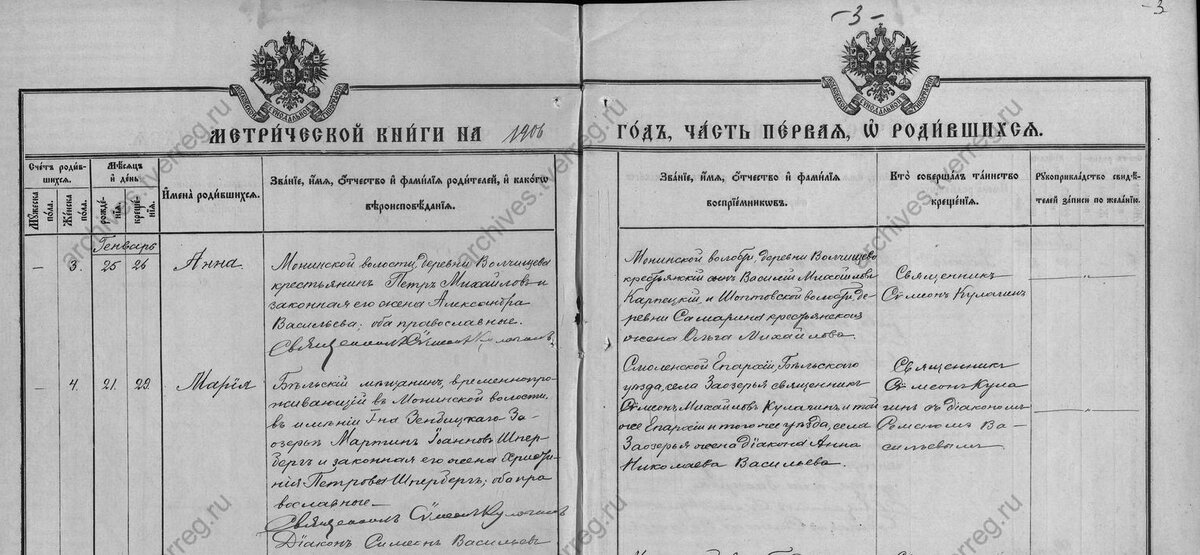 -3-
3
МЕТРИ́ЧЕСКОЙ КНИ́ГИ НА 1906 ГО́ДЪ, ЧА́СТЬ ПЕ́РВАЯ, Ѡ РОДИ́ВШИХСЯ.
Сче́тъ роди́вшихся.
Мѣ́сяцъ и́ де́нь
Му́жеска по́ла.
Же́нска по́ла.
рожде́нія.
креще́нія.
И́мена роди́вшихся.
Зва́ніе, и́мя, ѻ́тчество и́ фами́лія роди́телей, и́ како́гѡ вѣроисповѣ́данія.
Зва́ніе, и́мя, ѻ́тчество и́ фами́лія воспріе́мникѡвъ.
Кто́ соверша́лъ та́инство креще́нія.
Рꙋкоприкла́дство свидѣ́телей за́писи по жела́нію.
Генварь
— 3. 25 26 Анна.
Монинской волости, деревни Волчищева
крестьянинъ Петръ Михайловъ и
законная его жена Александра
Васильева; оба православные.
Священникъ Сѵмеонъ Кулагинъ
Монинской волости, деревни Волчищево
крестьянскій сынъ Василій Михайловъ
и Шоптовской волости де-
ревни Самарина крестьянская
жена Ольга Михайлова.
Священникъ
Сѵмеонъ Кулагинъ
— 4. 21. 29. Марія
Бѣльскій мѣщанинъ, временно про-
живающій въ Монинской волости
въ имѣніи Г-на За-
озерье Мартинъ Іоанновъ Шпер-
бергъ и законная его жена
Петрова Шпербергъ; оба пра-
вославные.
Священникъ Сѵмеонъ Кулагинъ
Діаконъ Симеонъ Васильевъ
Смоленской Епархіи, Бѣльскаго
уѣзда, села Заозерья священникъ
Сѵмеонъ Михайловъ Кулагинъ и той
же Епархіи и того же уѣзда, села
Заозерья жена діакона Анна
Николаева Васильева.
Священникъ
Сѵмеонъ Кула
гинъ съ діакономъ
Ва-
сильевымъ
archives.tverreg.ru